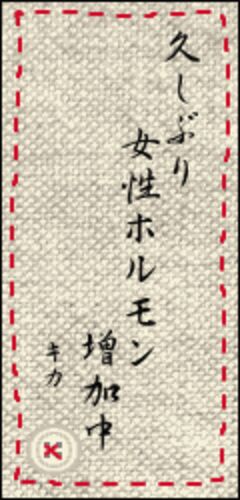 久しぶり
女性ホルモン
増加中
キカ